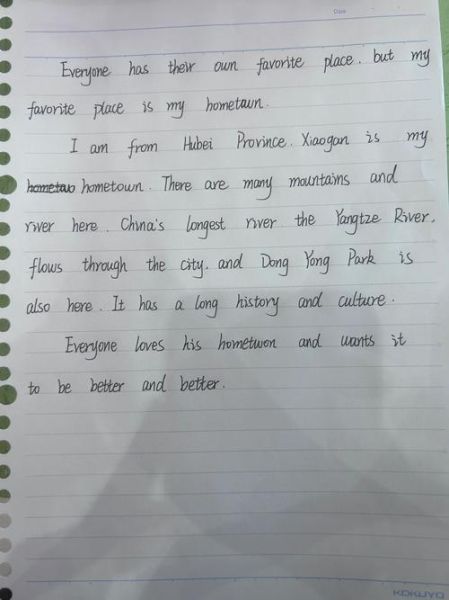 Date
Everyone has their own favorite place. but my
favorite place is my hometown.
I am from Hubei Province. Xiaogan is my
hometao hometown. There are many mountains and
river here. China's longest river the Yangtze River.
flows through the city. and Dong Yong Park is
also here. It has a long history and culture.
Everyone loves his hometwon and wants it
to be better and better.
KOKUYO